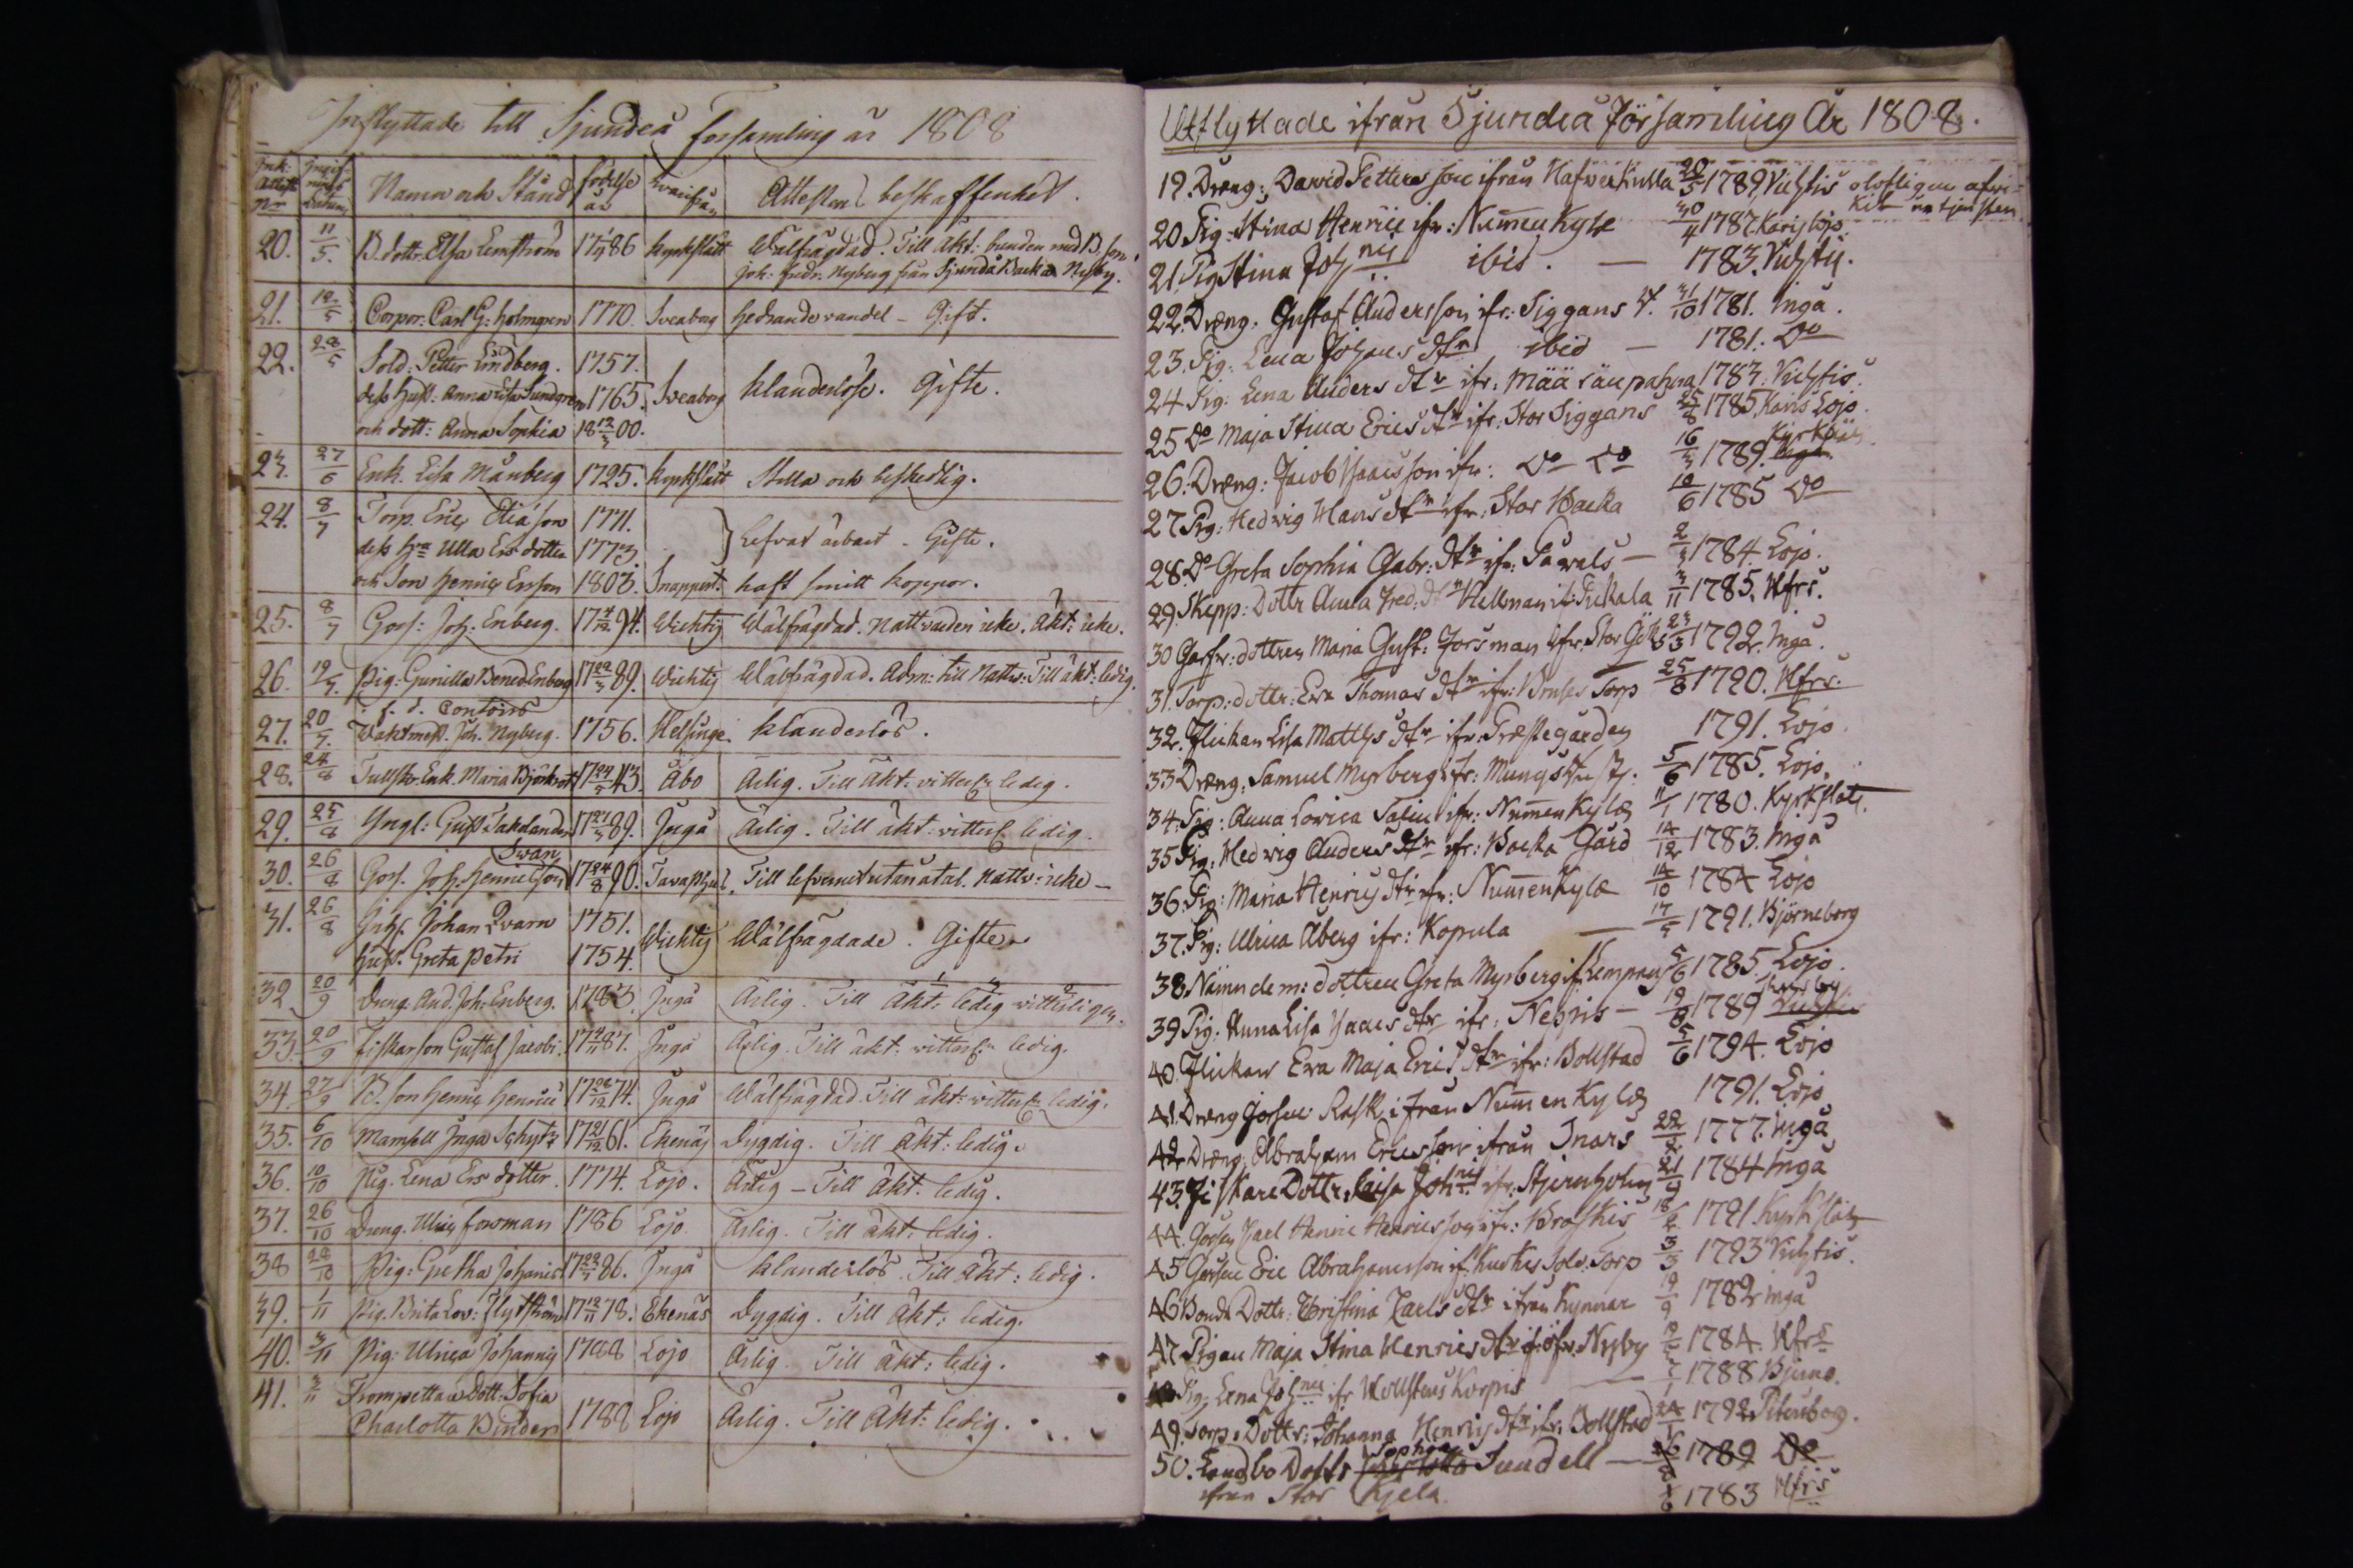 Inflyttade till Sjundeå Församling år 1808
Namn och Stånd födelse år hvarifrån Attestens beskaffenhet.
20. 11/5. B.dottr. Elsa Lemström 17 86 Kyrkslätt Wälfrägdad. Till äkt: bunden med B.son.
Joh: Fredr. Nyberg från Sjundå Backa Nyby.
21. 12/5 Corpor: Carl G: Holmgren 1770. Sveaborg hedrande vandel - Gift.
22. 28/5 Sold: Petter Lindberg. 1757.
dess hust: Anna Lisa Sundgren 1765. Sveaborg klanderlöse. Gifte.
och dott: Anna Sophia 18 12/3 00.
23. 27/6 Enk. Lisa Månberg 1725. Kyrkslätt Stilla och beskedlig.
24. 8/7 Torp. Eric Eliason 1771.
dess h:u Ulla Ersdotter 1773. Lefvat ärbart. Gifte.
och Son Henric Ersson 1803. Snappert: haft smitt koppor.
25. 8/7 Goss: Joh: Enberg. 17 4/12 94. Wichtis Wälfrägdad. Nattvarden icke. Äkt: icke.
26. 19/7. Pig: Gunilla Bened Enberg 17 22/3 89. Wichtis Wälfrägdad. Adm: till Nattv: Till äkt: ledig.
f. d. Contoirs
27. 20/7. Waktmest. Joh. Nyberg. 1756. Helsinge. klanderlös.
28. 24/8 Tullsk. Enk. Maria Björkrot 17 43. Åbo Ärlig. Till äkt: vitterl: ledig.
29. 25/8 Yngl: Gust Takolander 17 89. Ingå Ärlig. Till äkt: vitterl: ledig.
Svan
30. 26/8 Goss. Joh. Henricson 17 24/8 90. Tavastkyrl. Till lefvernet utan åtal. Nattv: icke -
31. 26/8 Inhs. Johan Qvarn 1751.
hust. Greta Petri 1754. Wichtis Wälfrägdade. Gifte.
32 20/9 Dreng. And. Joh: Enberg. 1783. Ingå Ärlig. Till äkt: ledig vitterligen.
33. 20/9 Fiskarson Gustaf Jacobs. 17 4/11 87. Ingå Ärlig. Till äkt: vitterl: ledig.
34. 27/9 B. Son Henric Henrici 17 26/12 74. Ingå Wälfrägdad. Till äkt: vitterl: ledig.
35. 6/10 Mamsell Inga Schytz 17 21/12 61. Ekenäs Dygdig. Till äkt: ledig.
36. 10/10 Pig. Lena Ers dotter. 1774. Lojo. Ärlig - Till äkt: ledig.
37. 26/10 Dreng. Ulric Forsman 1786 Lojo. Ärlig. Till äkt: ledig.
38 28/10 Pig: Gretha Johanis 17 86. Ingå klanderlös Till äkt: ledig.
39. 1/11 Pig. Brita Lov: Flytström 17 12/11 78. Ekenäs Dygdig. Till äkt: ledig.
40. 3/11 Pig: Ulrica Johannis 1788 Lojo Ärlig. Till äkt: ledig.
41. 3/11 Trompettare Dott: Sofia
Charlotta Binder 1788 Lojo Ärlig. Till äkt: ledig.
Utflyttade ifrån Sjundeå Församling År 1808.
19. Dræng: David Petters son ifrån Hafverkulla 20/5 1789. Vichtis olofligen afvi-
kit ur tjensten
20 Pig: Stina Henrici ifr: Numenkyle 30/4 1787. Karislojo.
21. Pig Stina Joh:nis ibid. — 1783. Vichtis.
22. Dræng: Gustaf Andersson ifr: Siggans 31/10 1781. Ingå.
23. Pig: Lena Johans dtr ibid — 1781. Do
24 Pig: Lena Anders dtr ifr: Määräupahna 1783: Vichtis.
25 Do Maja Stina Erics dtr ifr: Stor Siggans 25/8 1785. Karis Lojo.
Kyrkslät
26. Dræng: Jacob Isaacsson ifr: Do Do 16/3 1789. Ingå
27 Pig: Hedvig Hans dtr ifr: Stor Backa 10/6 1785 Do
28. Do Greta Sophia Gabr: dtr ifr: Pawals — 2/3 1784 Lojo.
29. Skepp: Dottr Anna Fred: dtr Hellman if: Pickala 3/11 1785. Hfrs.
30 Garfv: dottren Maria Gust: Forsman ifr: Stor Göks 23/3 1792. Ingå.
31. Torp: dottr: Eva Thomas dtr ifr: Bonses Torp 25/8 1790. Hfrs.
32. Flickan Lisa Matthys dtr ifr: Præstegården 1791. Lojo.
33 Dræng: Samuel Myrberg ifr: Munys 5/6 1785. Lojo.
34. Pig: Anna Lovica Salin ifr: Numenkyle 11/1 1780. Kyrkslätt.
35 Pig: Hedvig Anders dtr ifr: Backa Gård 14/12 1783. Ingå
36. Pig: Maria Henrics dtr ifr: Numenkyle 14/10 1784 Lojo
37. Pig: Ulrica Åberg ifr: Kopula — 17/5 1791. Björneborg
38. Nämndem: dottren Greta Myrberg if. Lempans 5/6 1785. Lojo.
39 Pig: Anna Lisa Isaacs dtr ifr: Negris — 19/8 1789 Vichtis
40. Flickan Eva Maja Erics dtr ifr: Bollstad 5/6 1794. Lojo
41. Dræng Josua Rask ifrån Numenkyle 1791. Lojo
42 Dræng Abraham Ericsson ifrån Inars 22/2 1777. Ingå
43. Fiskare Dottr: Caisa Joh:nis ifr: Stjernholm 21/9 1784 Ingå
44. Gossen Carl Henric Henricsson ifr: Broskis 18/2 1791 Kyrkslätt
45 Gossen Eric Abrahamsson if: Kuskus Sold: Torp 3/3 1793 Vichtis.
46 Bonde Dottr: Christina Carls dtr ifrån Kynnar 19/9 1782 Ingå
47. Pigan Maja Stina Henrics dtr ifr: Nyby 1784. Hfrs
48 Pig: Lena Joh:nis ifr Wollstens Korpis 1788 Bjerno.
49. Torp: Dottr: Johanna Henrics dtr ifr: Bollstad 24/1 1792 Petersborg.
Sophia
50. Landbo Dottr Sundell — 1789 Do
ifrån Stor Kjela. 1783 Hfrs